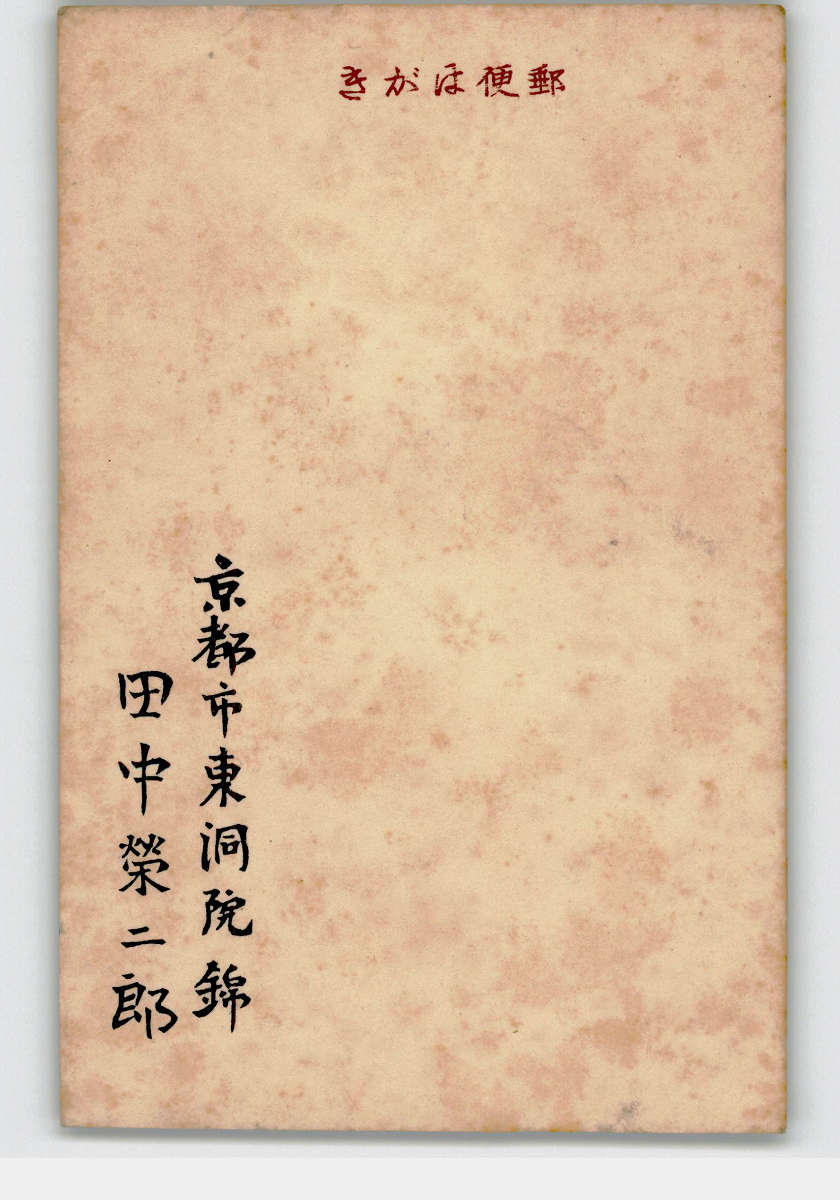 きがほ便郵
京都市東洞院錦
田中榮二郎